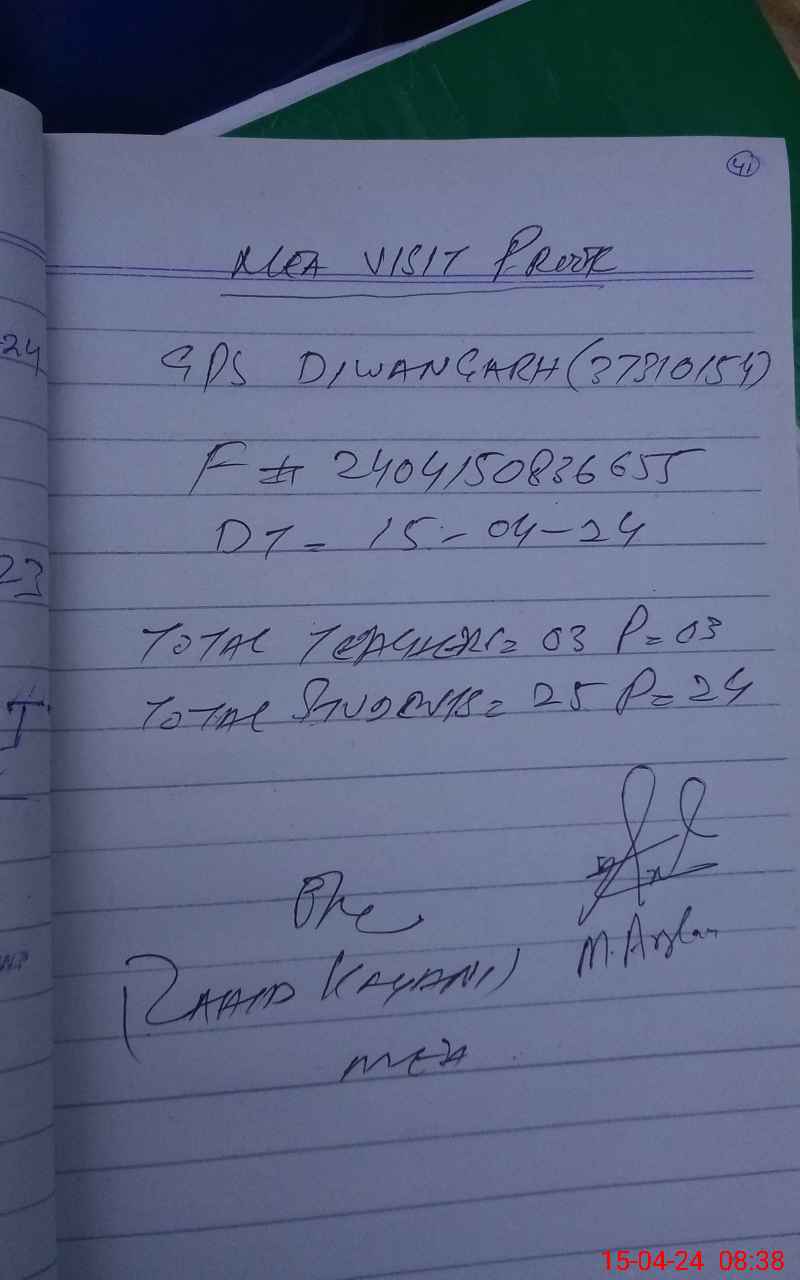 41
MEA VISIT PROOF
GPS DIWANGARH (37310154)
F # 2404150836655
DT = 15-04-24
TOTAL TEACHERS = 03 P = 03
TOTAL STUDENTS = 25 P = 24
M. Arslan
KAYANI)
MEA
24
23
15-04-24 08:38